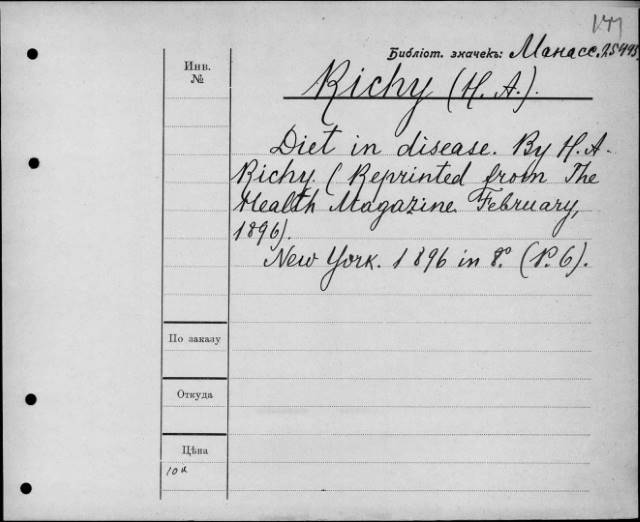 Библіот. значекъ: Манасс. 25495
Инв.
№
Richy (H. A.).
Diet in disease. By H. A.
Richy. (Reprinted from The
Health Magazine February,
1896).
New York. 1896 in 8.° (P. 6).
По заказу
Откуда
Цѣна
10 к